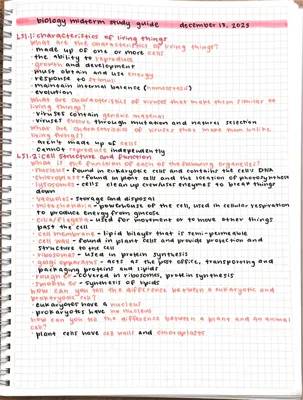 biology midterm study guide december 17, 2025
LS1.1: characteristics of living things
what are the characteristics of living things?
made up of one or more cells
the ability to reproduce
growth and development
must obtain and use energy
response to stimuli
maintain internal balance (homeostasis)
evolution
what are characteristics of viruses that make them similar to living things?
viruses contain genetic material
viruses evolve through mutation and natural selection
what are characteristics of viruses that make them unlike living things?
aren't made up of cells
cannot reproduce independently
LS1.2: cell structure and function
what is the function of each of the following organelles?
nucleus - found in eukaryotic cells and contains the cell's DNA
chloroplast - found in plant cells and the location of photosynthesis
lysosomes - cells' clean up crew/uses enzymes to break things down
vacuoles - storage and disposal
mitochondria - powerhouse of the cell, used in cellular respiration
to produce energy from glucose
cilia/flagella - used for movement or to move other things
past the cell
cell membrane - lipid bilayer that is semi-permeable
cell wall - found in plant cells and provide protection and
structure to the cell
ribosomes - used in protein synthesis
golgi apparatus - acts as the post office, transporting and
packaging proteins and lipids
rough ER - covered in ribosomes, protein synthesis
smooth ER - synthesis of lipids
how can you tell the difference between a eukaryotic and
prokaryotic cell?
eukaryotes have a nucleus
prokaryotes have no nucleus
how can you tell the difference between a plant and an animal
cell?
plant cells have cell walls and chloroplasts